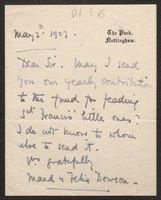 07 56
The Park,
Nottingham.
May 2nd 1907.
Dear Sir. May I send
you our yearly contribution
to the fund for feeding
St Francis' little ones?
I do not know to whom
else to send it.
Yrs gratefully
Maud & Felix Dowson.